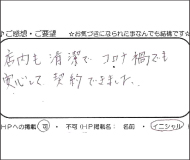 ♪ご感想・ご要望 ☆お気づきになられた事なんでも結構です☆
店内も清潔でコロナ禍でも
安心して契約できました。
HPへの掲載 可 ・ 不可（HP掲載名： 名前 ・ イニシャル